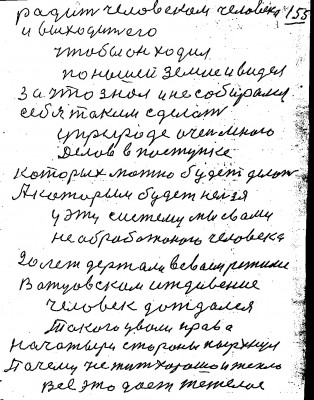 радит человеком человека 155
и выходит его
чтобы он ходил
по нашей земле и видел
За что знал и не собирался
себя таким сделать
у природе очен много
делов в поступке
которых можно будет делать
А которым будет нельзя
у эту систему мы с вами
не обработаного человека
20 лет держали в своем режиме
Ватцовском иждивение
человек дождался
такого у вами права
На чатыри стороны
Почему не жит хорошо и тепло
Все это дает тежелое